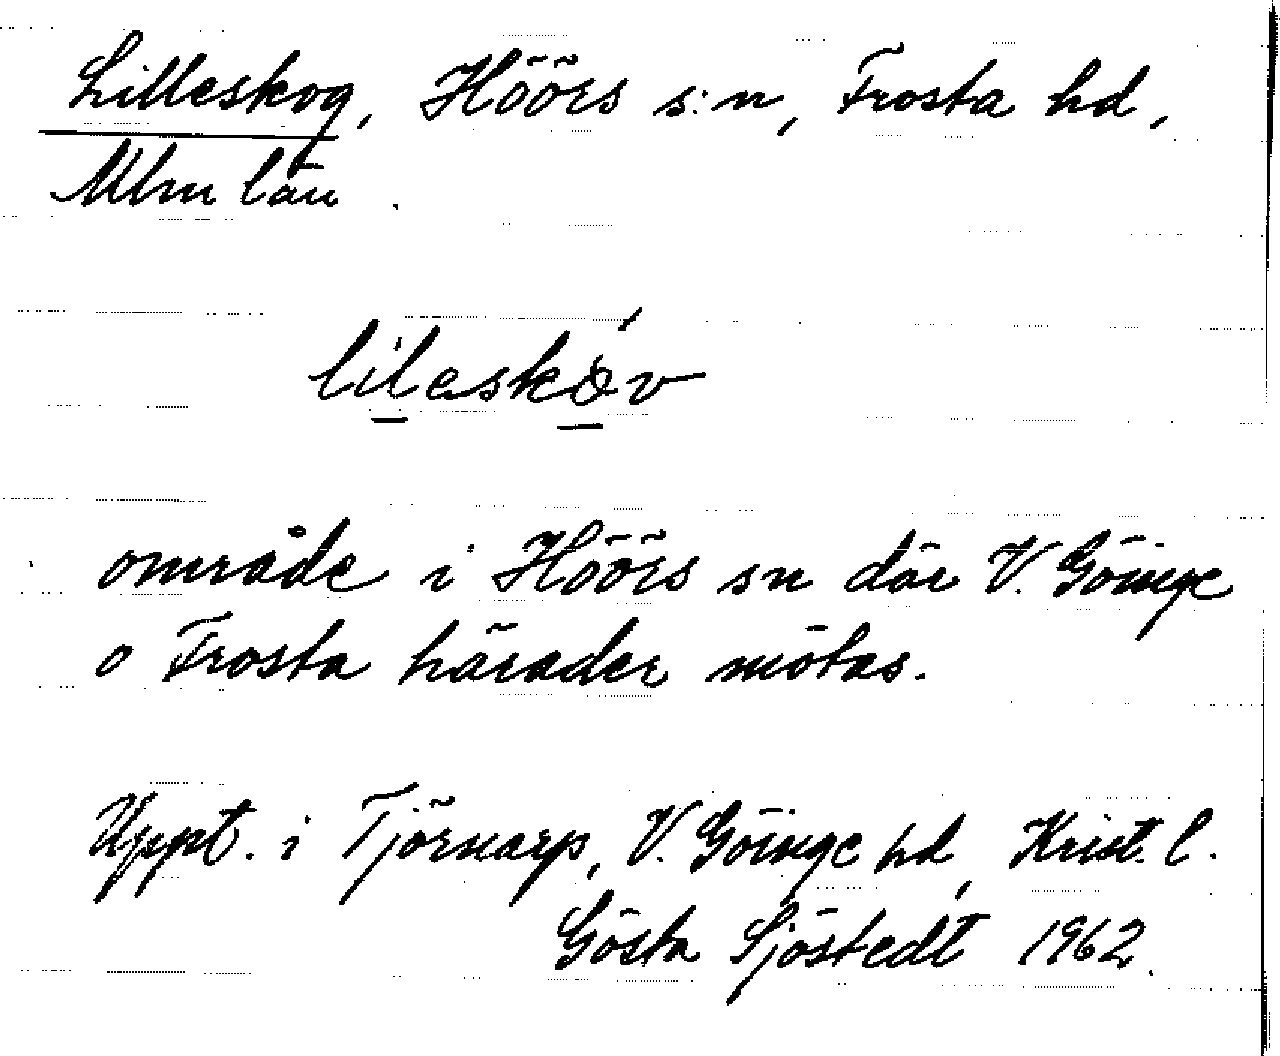 Lilleskog, Höörs s:n, Frosta hd,
Mlm län.
lilaskóv
område i Höörs sn där V. Göinge
o Frosta härader mötas.
Uppt. i Tjörnarp, V. Göinge hd, Krist. l.
Gösta Sjöstedt 1962.